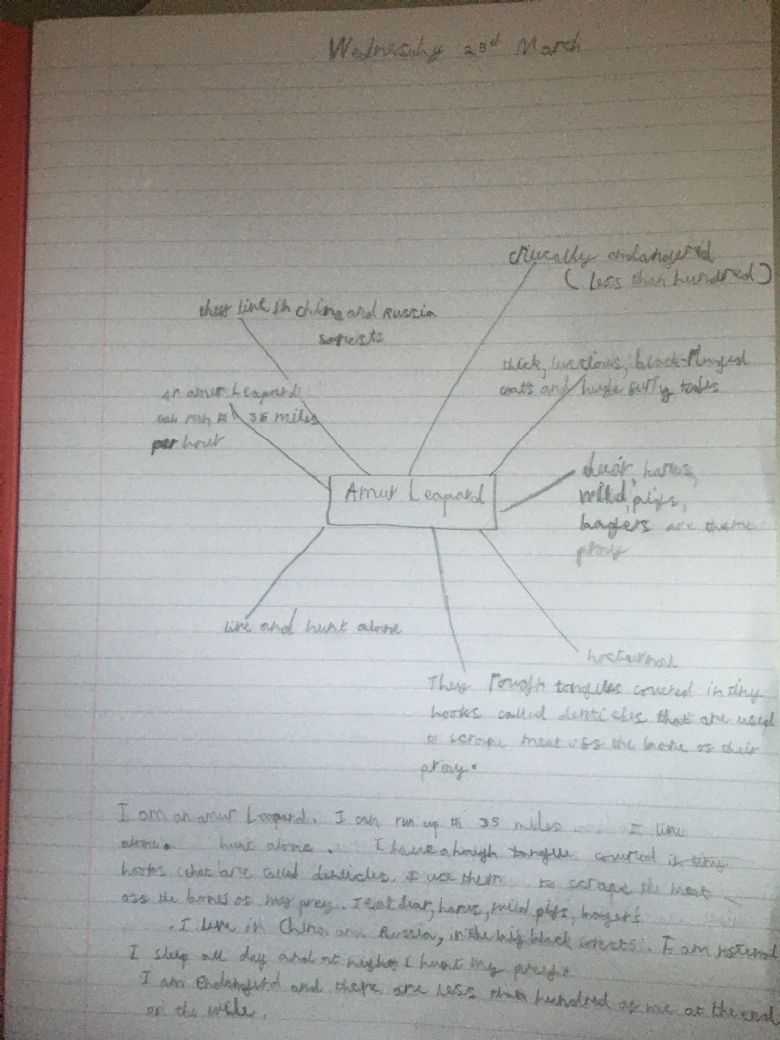 Wednesday 25th March
crucally endangered
(less than hundred)
they live in China and Russia
sorests
thick, luscious, black-ringed
coats and huge furry tales
An amur Leopard
can run 35 miles
per hour
Amur Leopard
dear, hares,
wild pigs,
bagers are there
pray
live and hunt alone
nocturnal
They rough tongues covered in tiny
hooks called denticles that are used
to scrape meat oss the bone os their
pray.
I am an amur Leopard. I can run up to 35 miles I live
alone. hunt alone. I have a tongue covered in tiny
hooks what are called denticles. I use them to scrape the meat
oss the bones os my prey. I eat dear, hares, wild pigs,
I live in China and Russia, in the big black sorests. I am
I sleep all day and at night I hunt my
I am endangerd and there are less than hundred os me at the end
on the